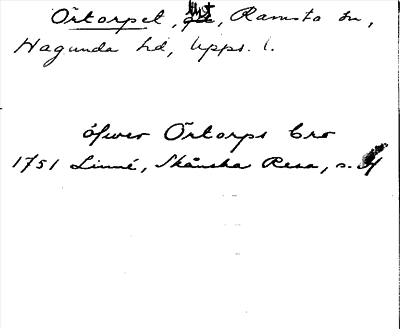 Örtorpet, Ramsta sn,
Hagunda hd, Upps. l.
öfwer Örtorps Bro
1751 Linné, Skånska Resa, s.